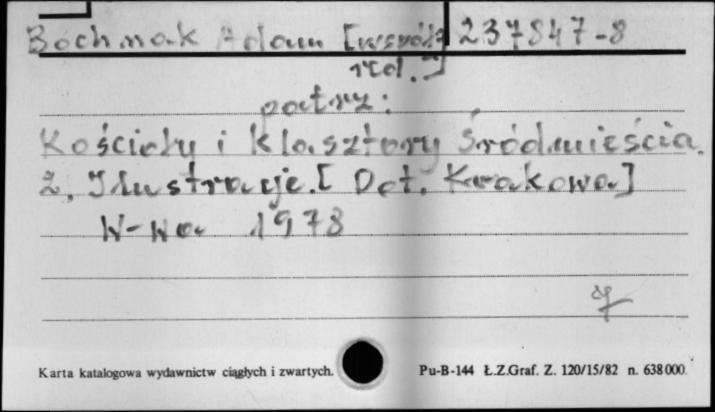 Bochnak Adam [współ 237847-8
red.]
patrz:
Kościoły i klasztory Śródmieścia.
2. Ilustracje. [Dot. Krakowa]
W-wa 1978
Karta katalogowa wydawnictw ciągłych i zwartych. Pu-B-144 Ł.Z.Graf. Z. 120/15/82 n. 638000.